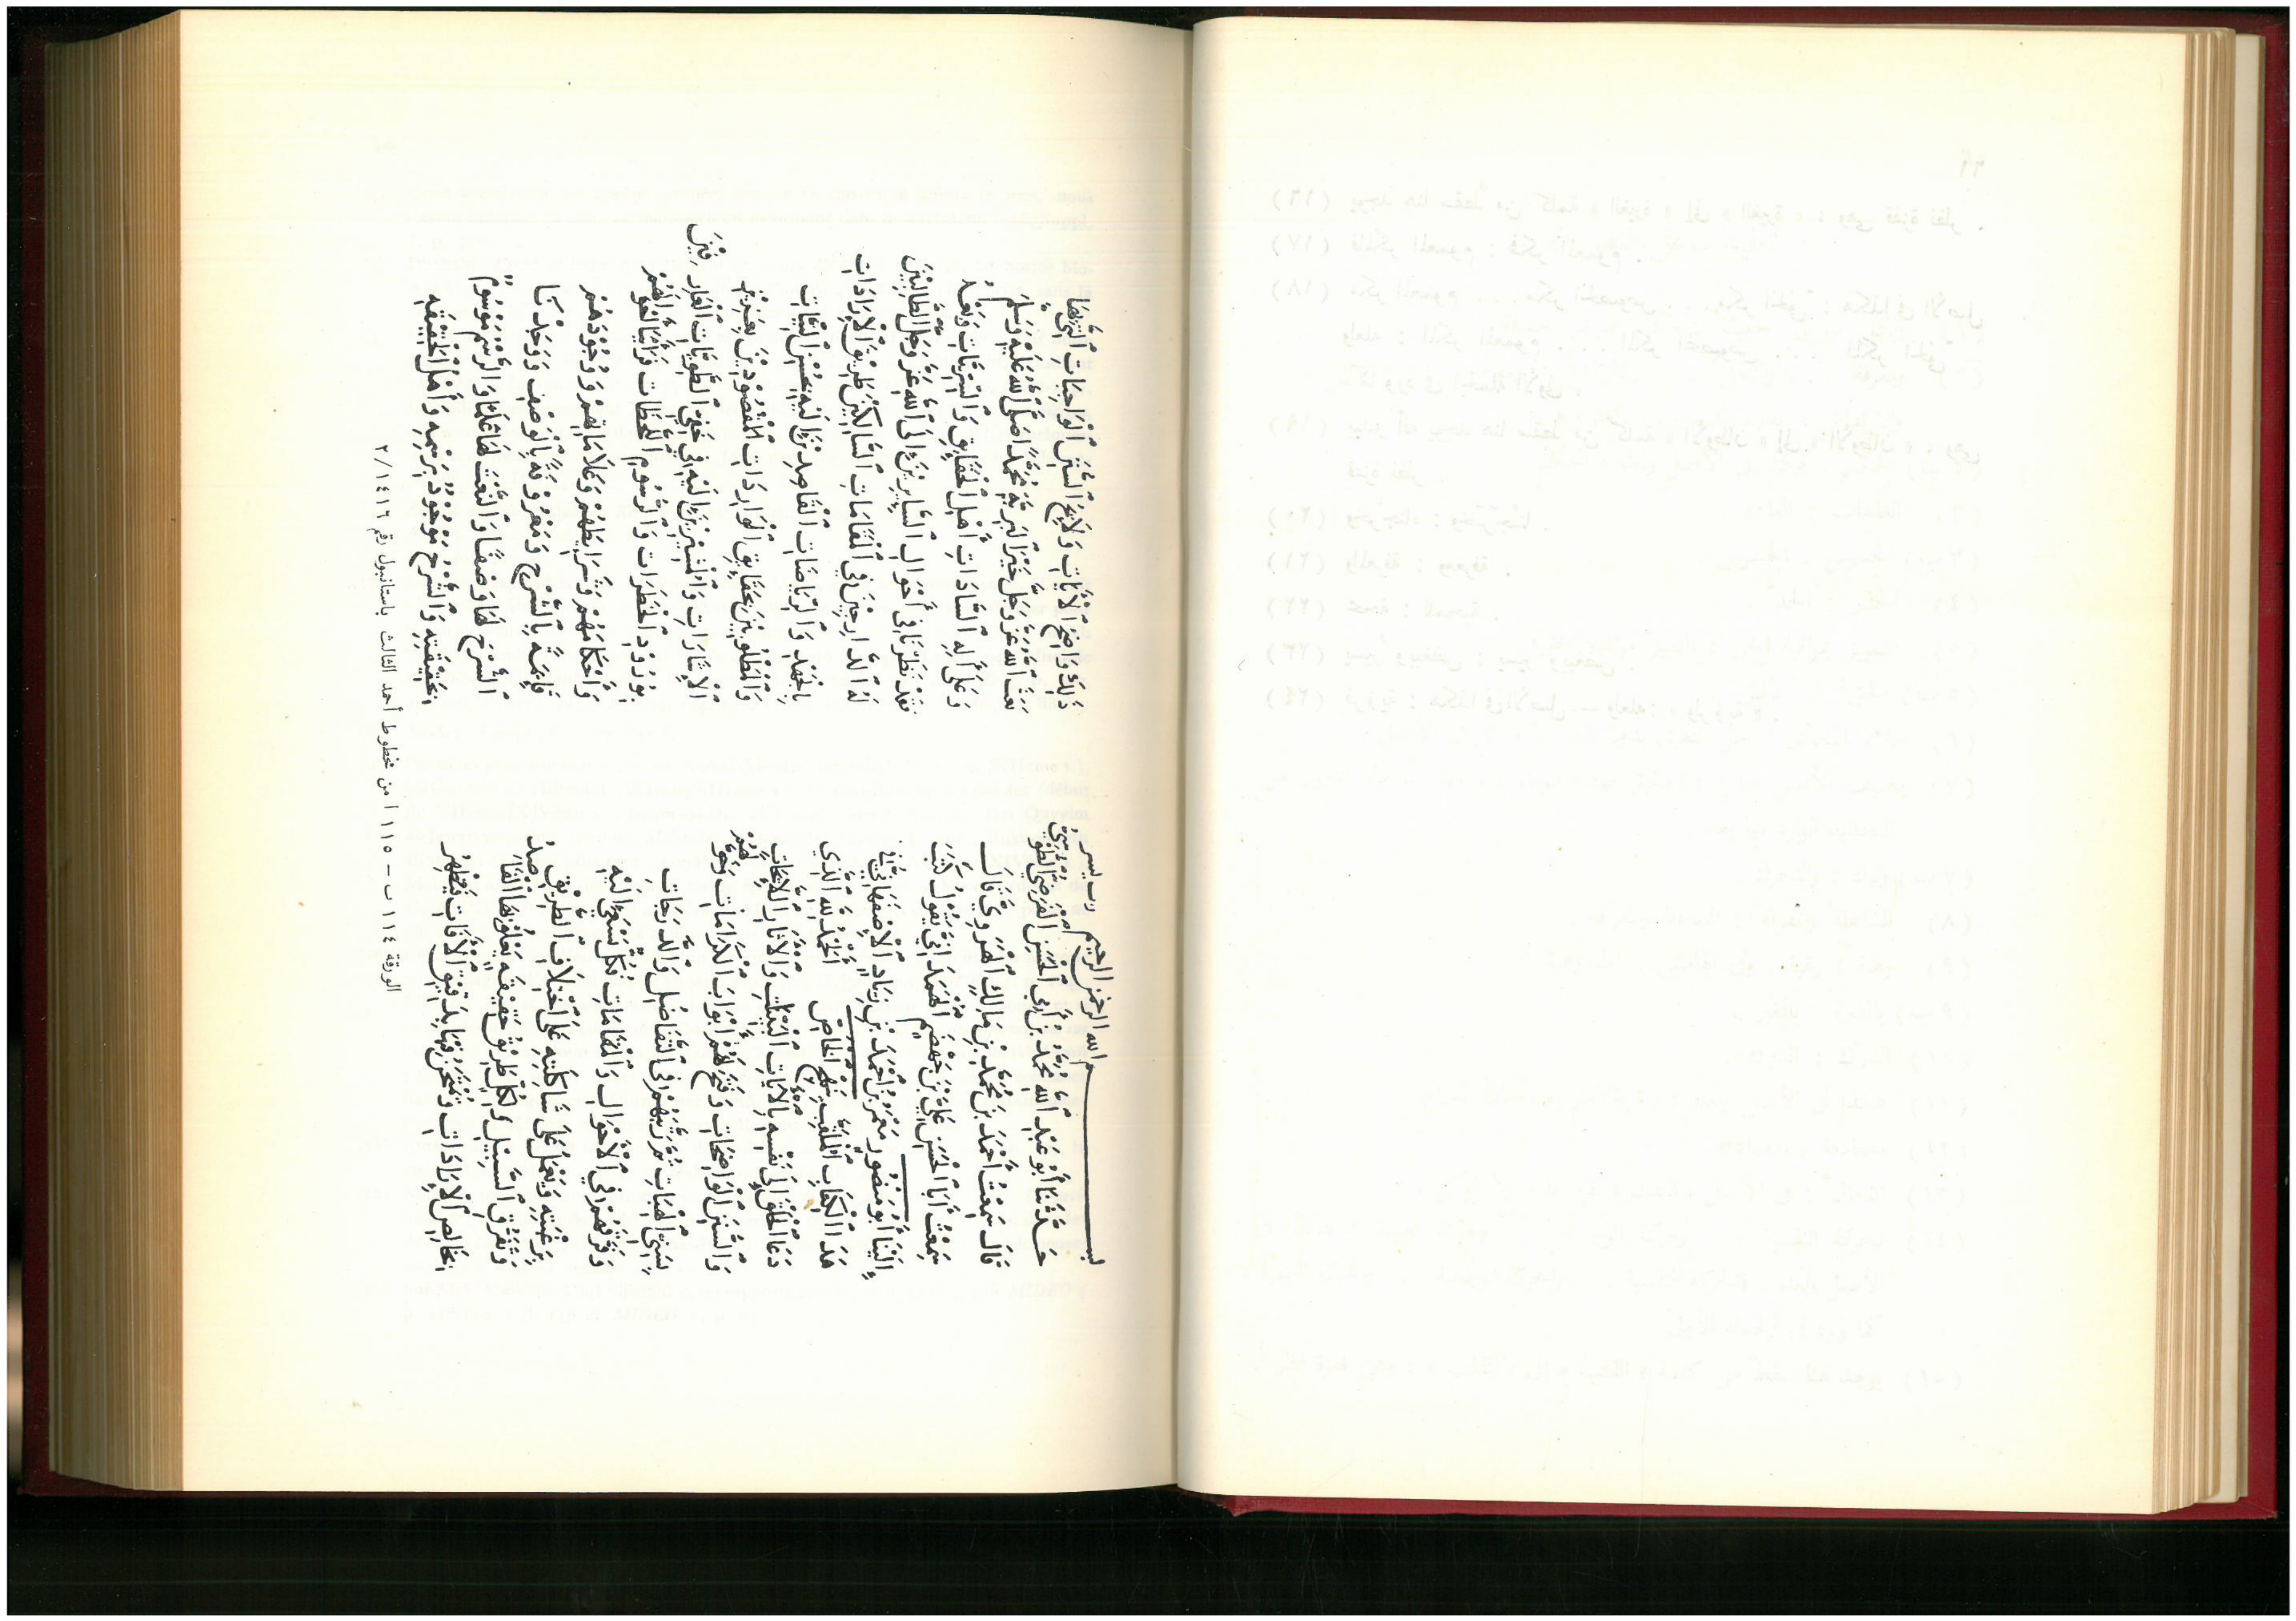 بسم الله الرحمن الرحيم رب يسر
حَدَّثَنَا أَبُو عَبْدِ اللهِ مُحَمَّدُ بْنُ أَبِي الْحَسَنِ الْفَرَضِيُّ الطُّوسِيُّ
قَالَ سَمِعْتُ أَحْمَدَ بْنَ مُحَمَّدِ بْنِ مَالِكٍ الْهَرَوِيَّ قَالَ
سَمِعْتُ أَبَا الْحَسَنِ عَلِيَّ بْنَ جَهْضَمٍ الْهَمَدَانِيَّ يَقُولُ كَتَبَ
إِلَيْنَا أَبُو مَنْصُورٍ مَعْمَرُ بْنُ أَحْمَدَ بْنِ زِيَادٍ الْإِصْفَهَانِيُّ فِي
هَذَا الْكِتَابِ الْمُلَقَّبِ بِنَهْجِ الْخَاصِّ الْحَمْدُ لِلَّهِ الَّذِي
دَعَا الْخَلْقَ إِلَى نَفْسِهِ بِالْآيَاتِ الْبَيِّنَاتِ وَالْآثَارِ اللَّائِحَاتِ
وَالسُّنَنِ الْوَاضِحَاتِ وَفَتَحَ لَهُمْ أَبْوَابَ الْكَرَامَاتِ وَخَوَّلَهُمْ
بِسَنِيِّ الْهِبَاتِ ثُمَّ رَتَّبَهُمْ فِي التَّفَاضُلِ وَالدَّرَجَاتِ
وَفَرَّقَهُمْ فِي الْأَحْوَالِ وَالْمَقَامَاتِ فَكُلٌّ سَعَى إِلَيْهِ
بِرَغْبَتِهِ وَيَعْمَلُ عَلَى شَاكِلَتِهِ عَلَى اخْتِلَافِ الطَّرِيقِ
وَتَفَرُّقِ السَّبِيلِ وَلِكُلِّ طَرِيقٍ حَقِيقَةٌ يَعْلُوهَا الْقَاصِدُ
بِخَالِصِ الْإِرَادَاتِ وَتَمْتَحِنُ فِيهَا بِدَقِيقِ الْآفَاتِ فَيَظْهَرُ
ذَلِكَ وَاضِحُ الْآيَاتِ وَلَائِحُ السُّنَنِ الْوَاجِبَاتِ الَّتِي بِهَا
بَعَثَ اللهُ عَزَّ وَجَلَّ خَيْرَ الْبَرِيَّةِ مُحَمَّدًا صَلَّى اللهُ عَلَيْهِ وَسَلَّمَ
وَعَلَى آلِهِ السَّادَاتِ أَهْلِ الْحَقَائِقِ وَبَعْدُ
فَقَدْ نَظَرْنَا فِي أَحْوَالِ السَّائِرِينَ إِلَى اللهِ عَزَّ وَجَلَّ الطَّالِبِينَ
لَهُ الدَّارِجِينَ فِي الْمَقَامَاتِ السَّالِكِينَ طَرِيقَ الْإِرَادَاتِ
بِالْجَهْدِ وَالرِّيَاضَاتِ الْقَاصِدِينَ إِلَيْهِ بِحُسْنِ النِّيَّاتِ
وَالْمَطْلُوبِينَ بِحَقَائِقِ الْوَارِدَاتِ الْمَقْصُودِينَ بِعَزِيزِ
الْإِشَارَاتِ وَالْمُشِيرِينَ إِلَيْهِ فِي خَفِيِّ الطَّوِيَّاتِ الْعَارِفِينَ
بِوُرُودِ الْخَطَرَاتِ وَالرُّسُومِ اللَّحَظَاتِ فَرَأَيْنَا أَحْوَالَهُمْ
وَأَحْكَامَهُمْ وَشَرَائِطَهُمْ وَعَلَامَاتِهِمْ وَوُجُودَهُمْ
قَائِمَةً بِالشَّرْحِ وَمَعْرُوفَةً بِالْوَصْفِ وَوَجَدْنَا
الشَّرْحَ لَهَا وَصْفًا وَالنَّعْتَ لَهَا عَلَمًا وَالرَّسْمَ مَوْسُومٌ
بِحَقِيقَتِهِ وَالشَّرْحُ مَوْجُودٌ بِرَسْمِهِ وَأَهْلُ الْحَقِيقَةِ
الورقة ١١٤ ب – ١١٥ أ من مخطوط أحمد الثالث باستانبول رقم ٢/١٤١٦